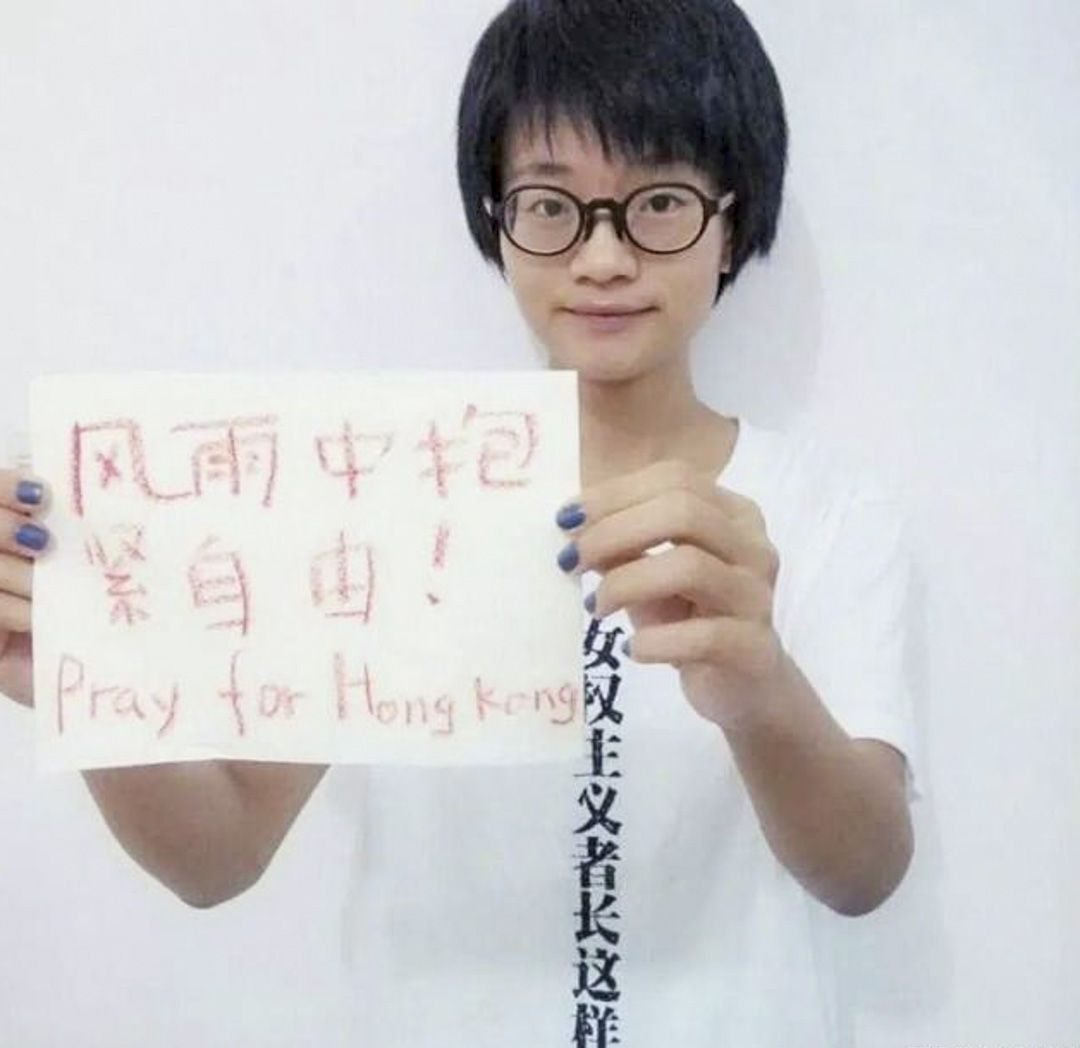 风雨中抱
紧自由！
Pray for Hong Kong
女权主义者长这样